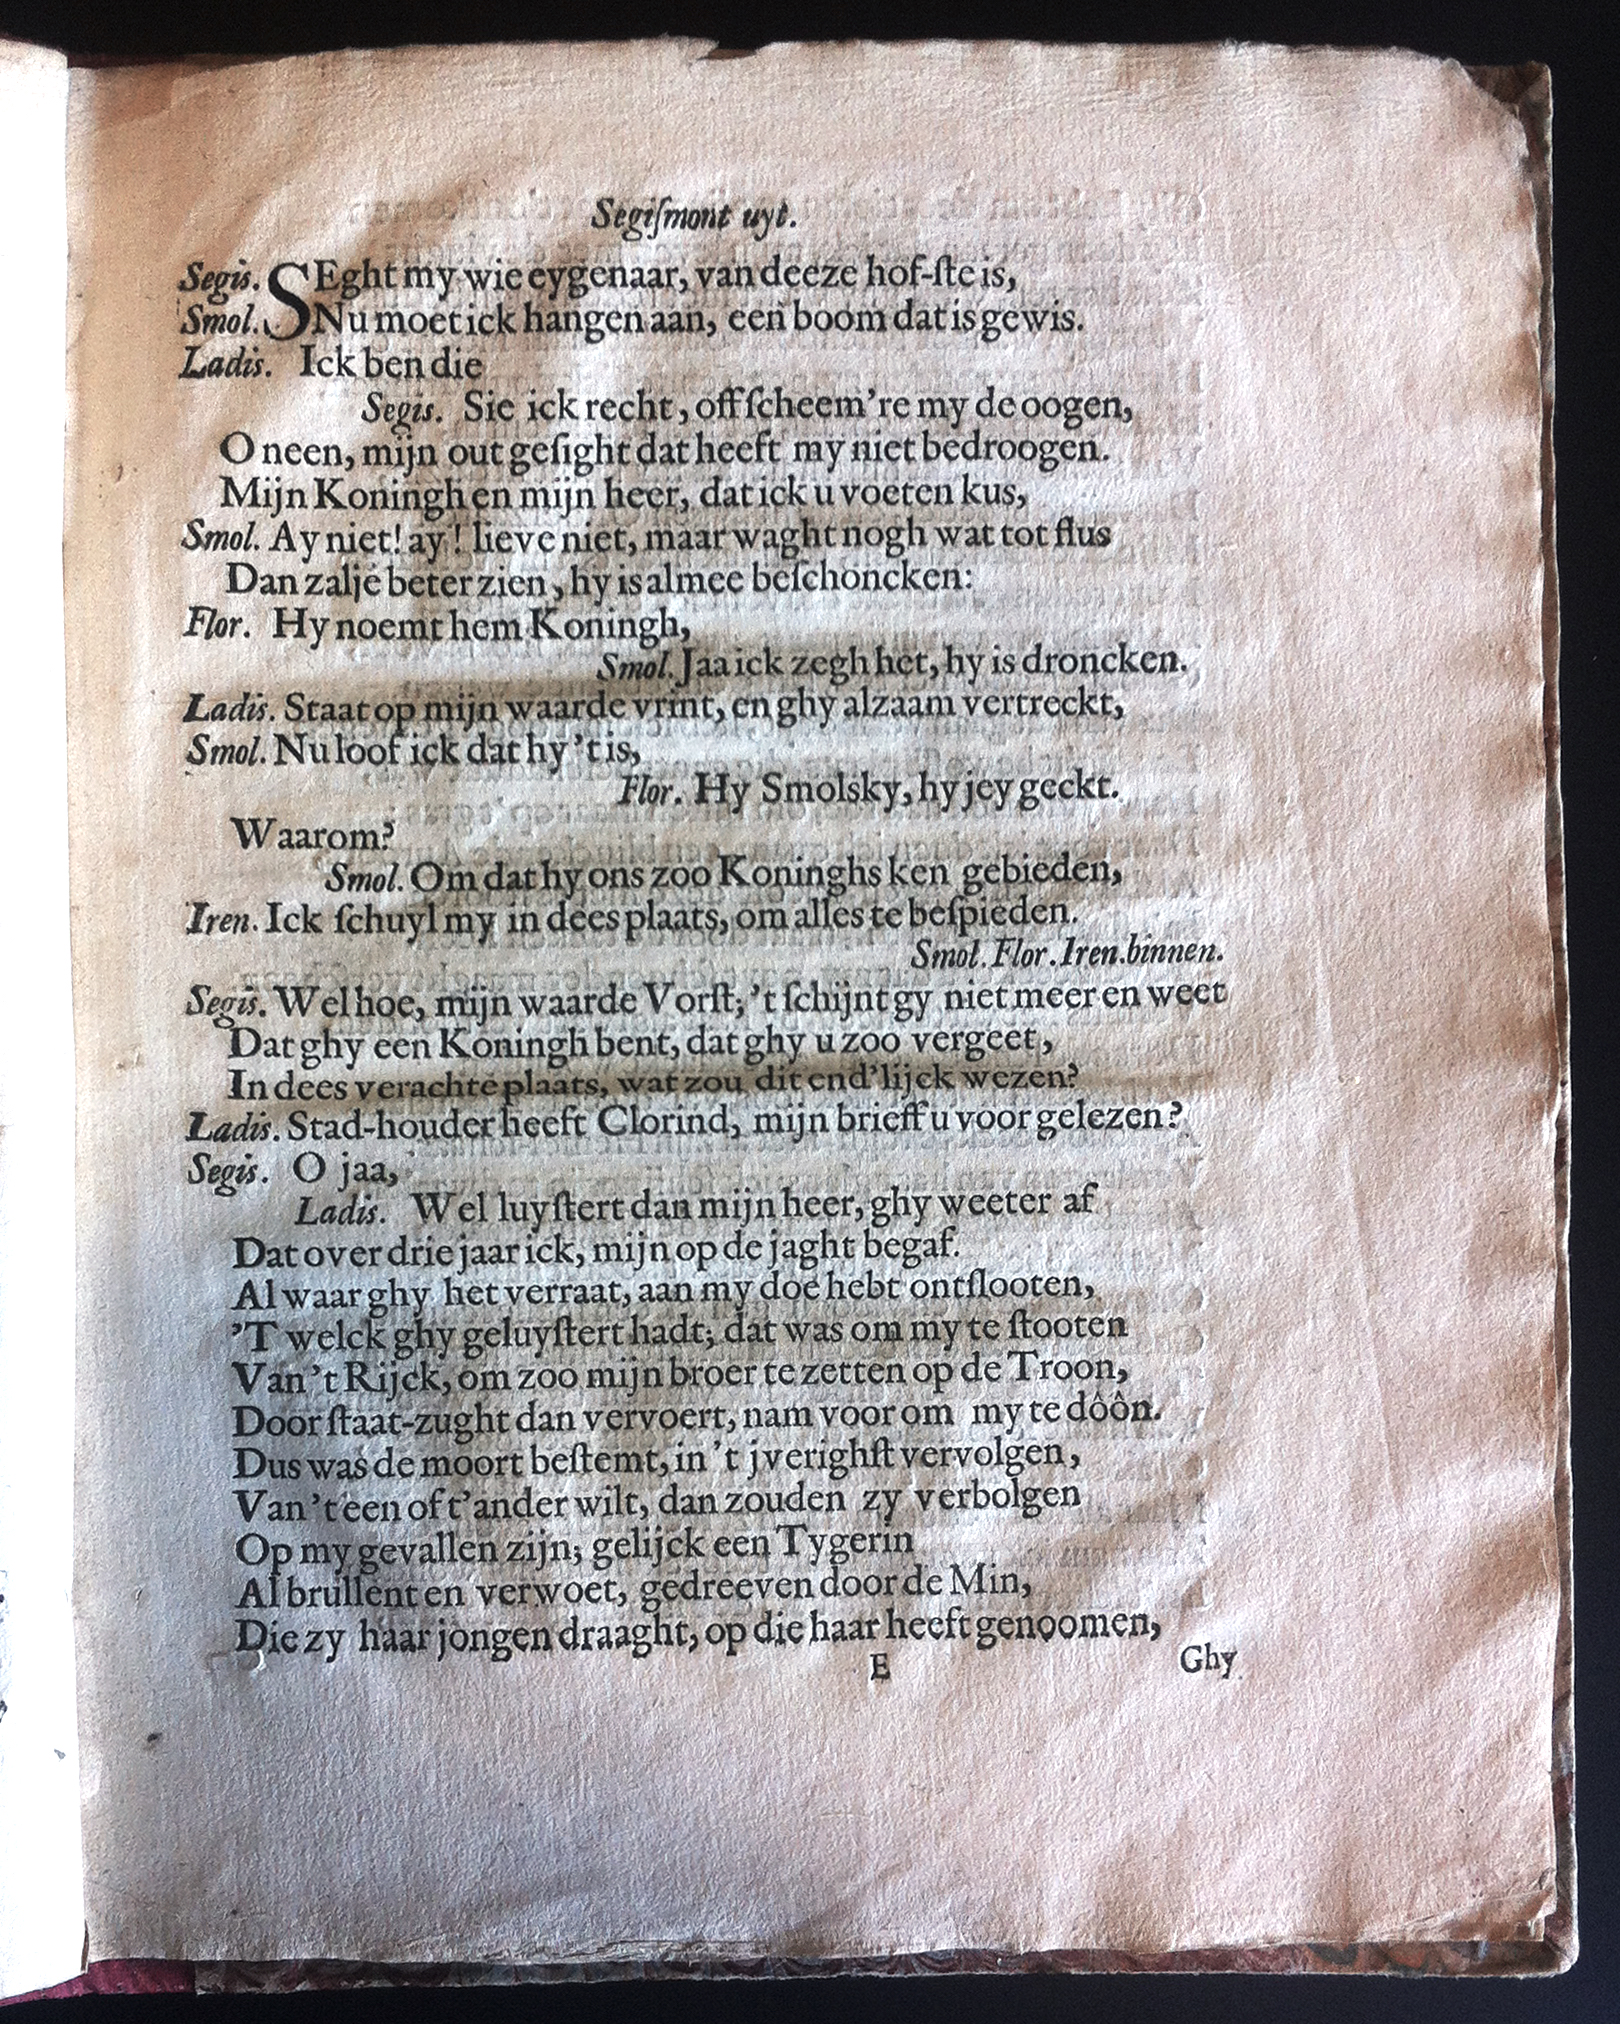 Segiſmont uyt.
Segis. SEght my wie eygenaar, van deeze hof-ſte is,
Smol. Nu moet ick hangen aan, een boom dat is gewis.
Ladis. Ick ben die
Segis. Sie ick recht, off ſcheem're my de oogen,
O neen, mijn out geſight dat heeft my niet bedroogen.
Mijn Koningh en mijn heer, dat ick u voeten kus,
Smol. Ay niet! ay! lieve niet, maar waght nogh wat tot flus
Dan zal je beter zien, hy is al mee beſchoncken:
Flor. Hy noemt hem Koningh,
Smol. Jaa ick zegh het, hy is droncken.
Ladis. Staat op mijn waarde vrint, en ghy alzaam vertreckt,
Smol. Nu loof ick dat hy 't is,
Flor. Hy Smolsky, hy jey geckt.
Waarom?
Smol. Om dat hy ons zoo Koninghs ken gebieden,
Iren. Ick ſchuyl my in dees plaats, om alles te beſpieden.
Smol. Flor. Iren. binnen.
Segis. Wel hoe, mijn waarde Vorſt; 't ſchijnt gy niet meer en weet
Dat ghy een Koningh bent, dat ghy u zoo vergeet,
In dees verachte plaats, wat zou dit end'lijck wezen?
Ladis. Stad-houder heeft Clorind, mijn brieff u voor gelezen?
Segis. O jaa,
Ladis. Wel luyſtert dan mijn heer, ghy weeter af
Dat over drie jaar ick, mijn op de jaght begaf.
Al waar ghy het verraat, aan my doe hebt ontſlooten,
'T welck ghy geluyſtert hadt; dat was om my te ſtooten
Van 't Rijck, om zoo mijn broer te zetten op de Troon,
Door ſtaat-zught dan vervoert, nam voor om my te dôôn.
Dus was de moort beſtemt, in 't jverighſt vervolgen,
Van 't een of t'ander wilt, dan zouden zy verbolgen
Op my gevallen zijn; gelijck een Tygerin
Al brullent en verwoet, gedreeven door de Min,
Die zy haar jongen draaght, op die haar heeft genoomen,
E Ghy